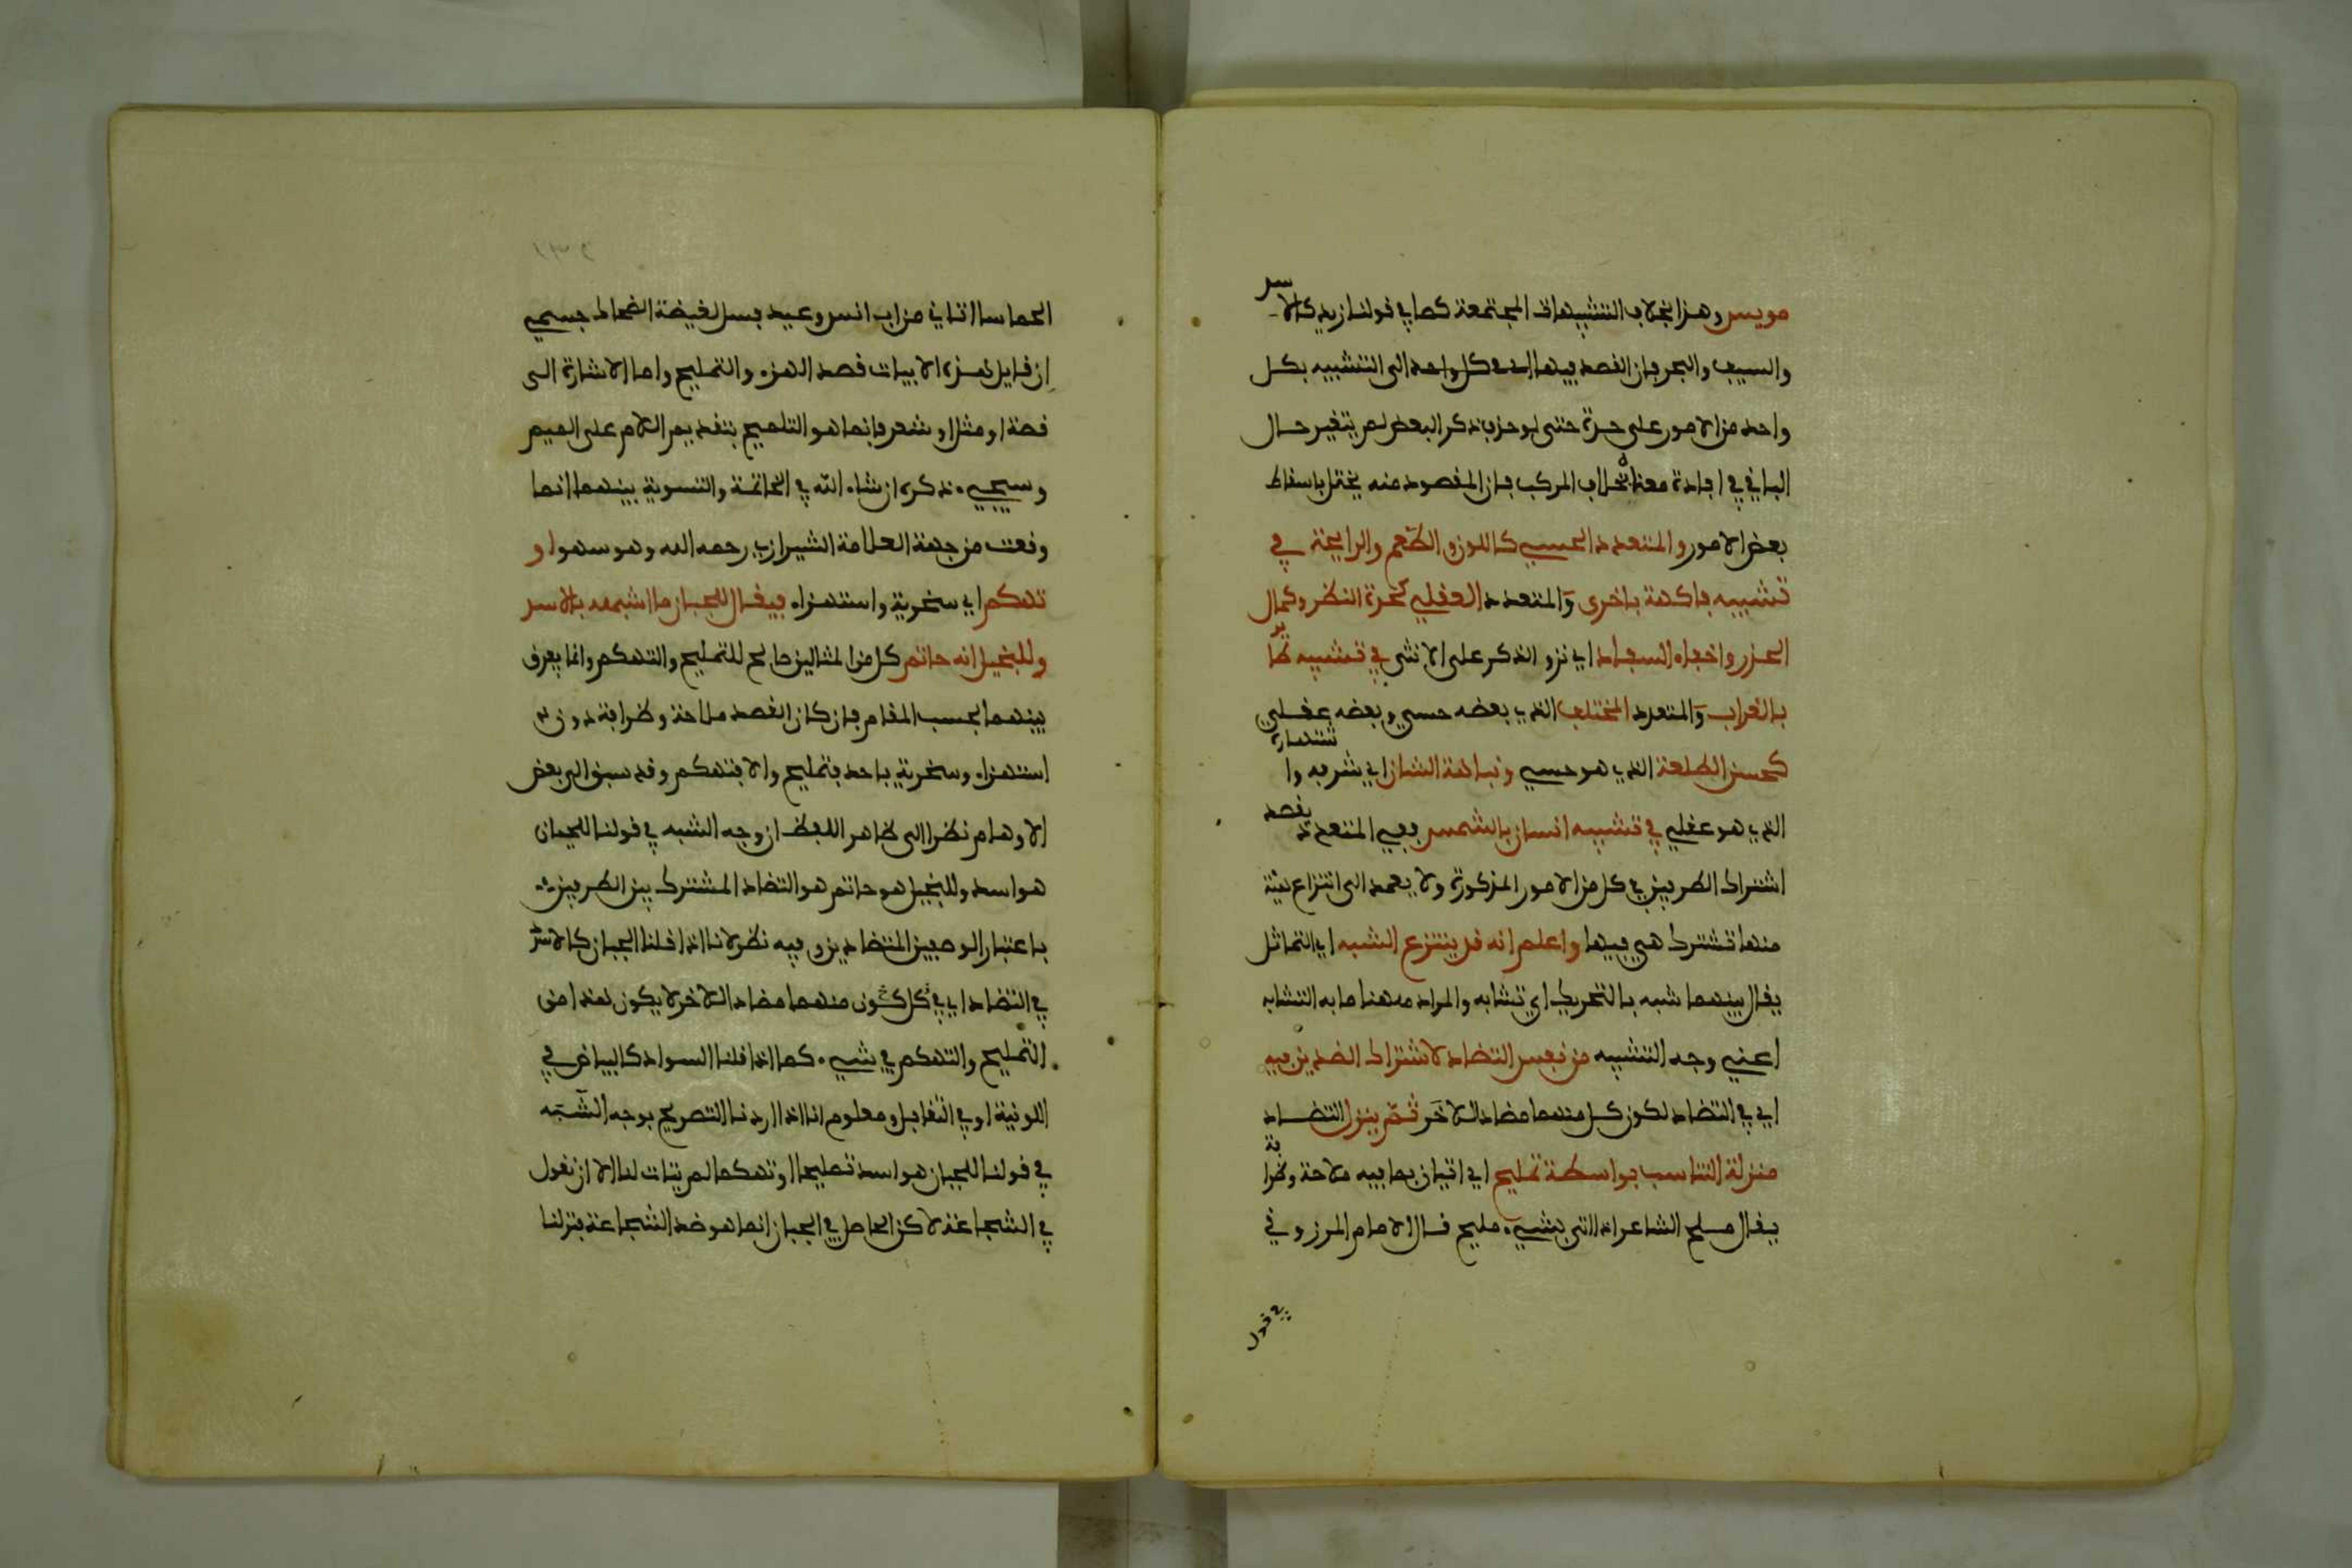 مويس وهذا بخلاف التشبيهات المجتمعة كما في قولنا زيد كالاسد
والسيف والبحر فان القصد فيها الى كل واحد الى التشبيه بكل
واحد من الامور على حدة حتى لو حذف ذكر البعض لم يتغير حال
الباقي في افادة معناه بخلاف المركب فان المقصود منه يختل باسقاط
بعض الامور والمتعدد الحسي كاللون والطعم والرايحة في
تشبيه فاكهة باخرى والمتعدد العقلي كحدة النظر وكمال
الحذر واخفاء السفاد اي نزو الذكر على الانثى في تشبيه طاير
بالغراب والمتعدد المختلف الذي بعضه حسي وبعضه عقلي
كحسن الطلعة الذي هو حسي ونباهة الشان اي شرفه واشتهاره
الذي هو عقلي في تشبيه انسان بالشمس ففي المتعدد يقصد
اشتراك الطرفين في كل من الامور المذكورة ولا يعمد الى انتزاع هيئة
منها تشترك هي فيها واعلم انه قد ينتزع الشبه اي التماثل
يقال بينهما شبه بالتحريك اي تشابه والمراد ههنا ما به التشابه
اعني وجه التشبيه من نفس التضاد لاشتراك الضدين فيه
اي في التضاد لكون كل منهما مضادا للاخر ثم ينزل التضاد
منزلة التناسب بواسطة تمليح اي اتيان بما فيه ملاحة وظرافة
يقال ملح الشاعر اذا اتى بشيء مليح قال الامام المرزوقي
في قول
الحماسي اتاني من ابي انس وعيد فسل لغيضة الضحاك جسمي
ان قايل هذه الابيات قصد الهزء والتمليح واما الاشارة الى
قصة او مثل او شعر فانما هو التلميح بتقديم اللام على الميم
وسيجيء ذكره ان شاء الله في الخاتمة والتسوية بينهما انما
وقعت من جهة العلامة الشيرازي رحمه الله وهو سهو او
تهكم اي سخرية واستهزاء فيقال للجبان ما اشبهه بالاسد
وللبخيل انه حاتم كل من المثالين صالح للتمليح والتهكم وانما يفرق
بينهما بحسب المقام فان كان القصد ملاحة وظرافة دون
استهزاء وسخرية باحد فتمليح والا فتهكم وقد سبق الى بعض
الاوهام نظرا الى ظاهر اللفظ ان وجه الشبه في قولنا للجبان
هو اسد وللبخيل هو حاتم هو التضاد المشترك بين الطرفين
باعتبار الوصفين المتضادين وفيه نظر لانا اذا قلنا الجبان كالاسد
في التضاد اي في كون كل منهما مضادا للاخر لا يكون هذا من
التمليح والتهكم في شيء كما اذا قلنا السواد كالبياض في
اللونية او في التقابل ومعلوم انا اذا اردنا التصريح بوجه الشبه
في قولنا للجبان هو اسد تمليحا او تهكما لم يتات لنا الا ان نقول
في الشجاعة لاكن الحاصل في الجبان انما هو ضد الشجاعة فنزلنا